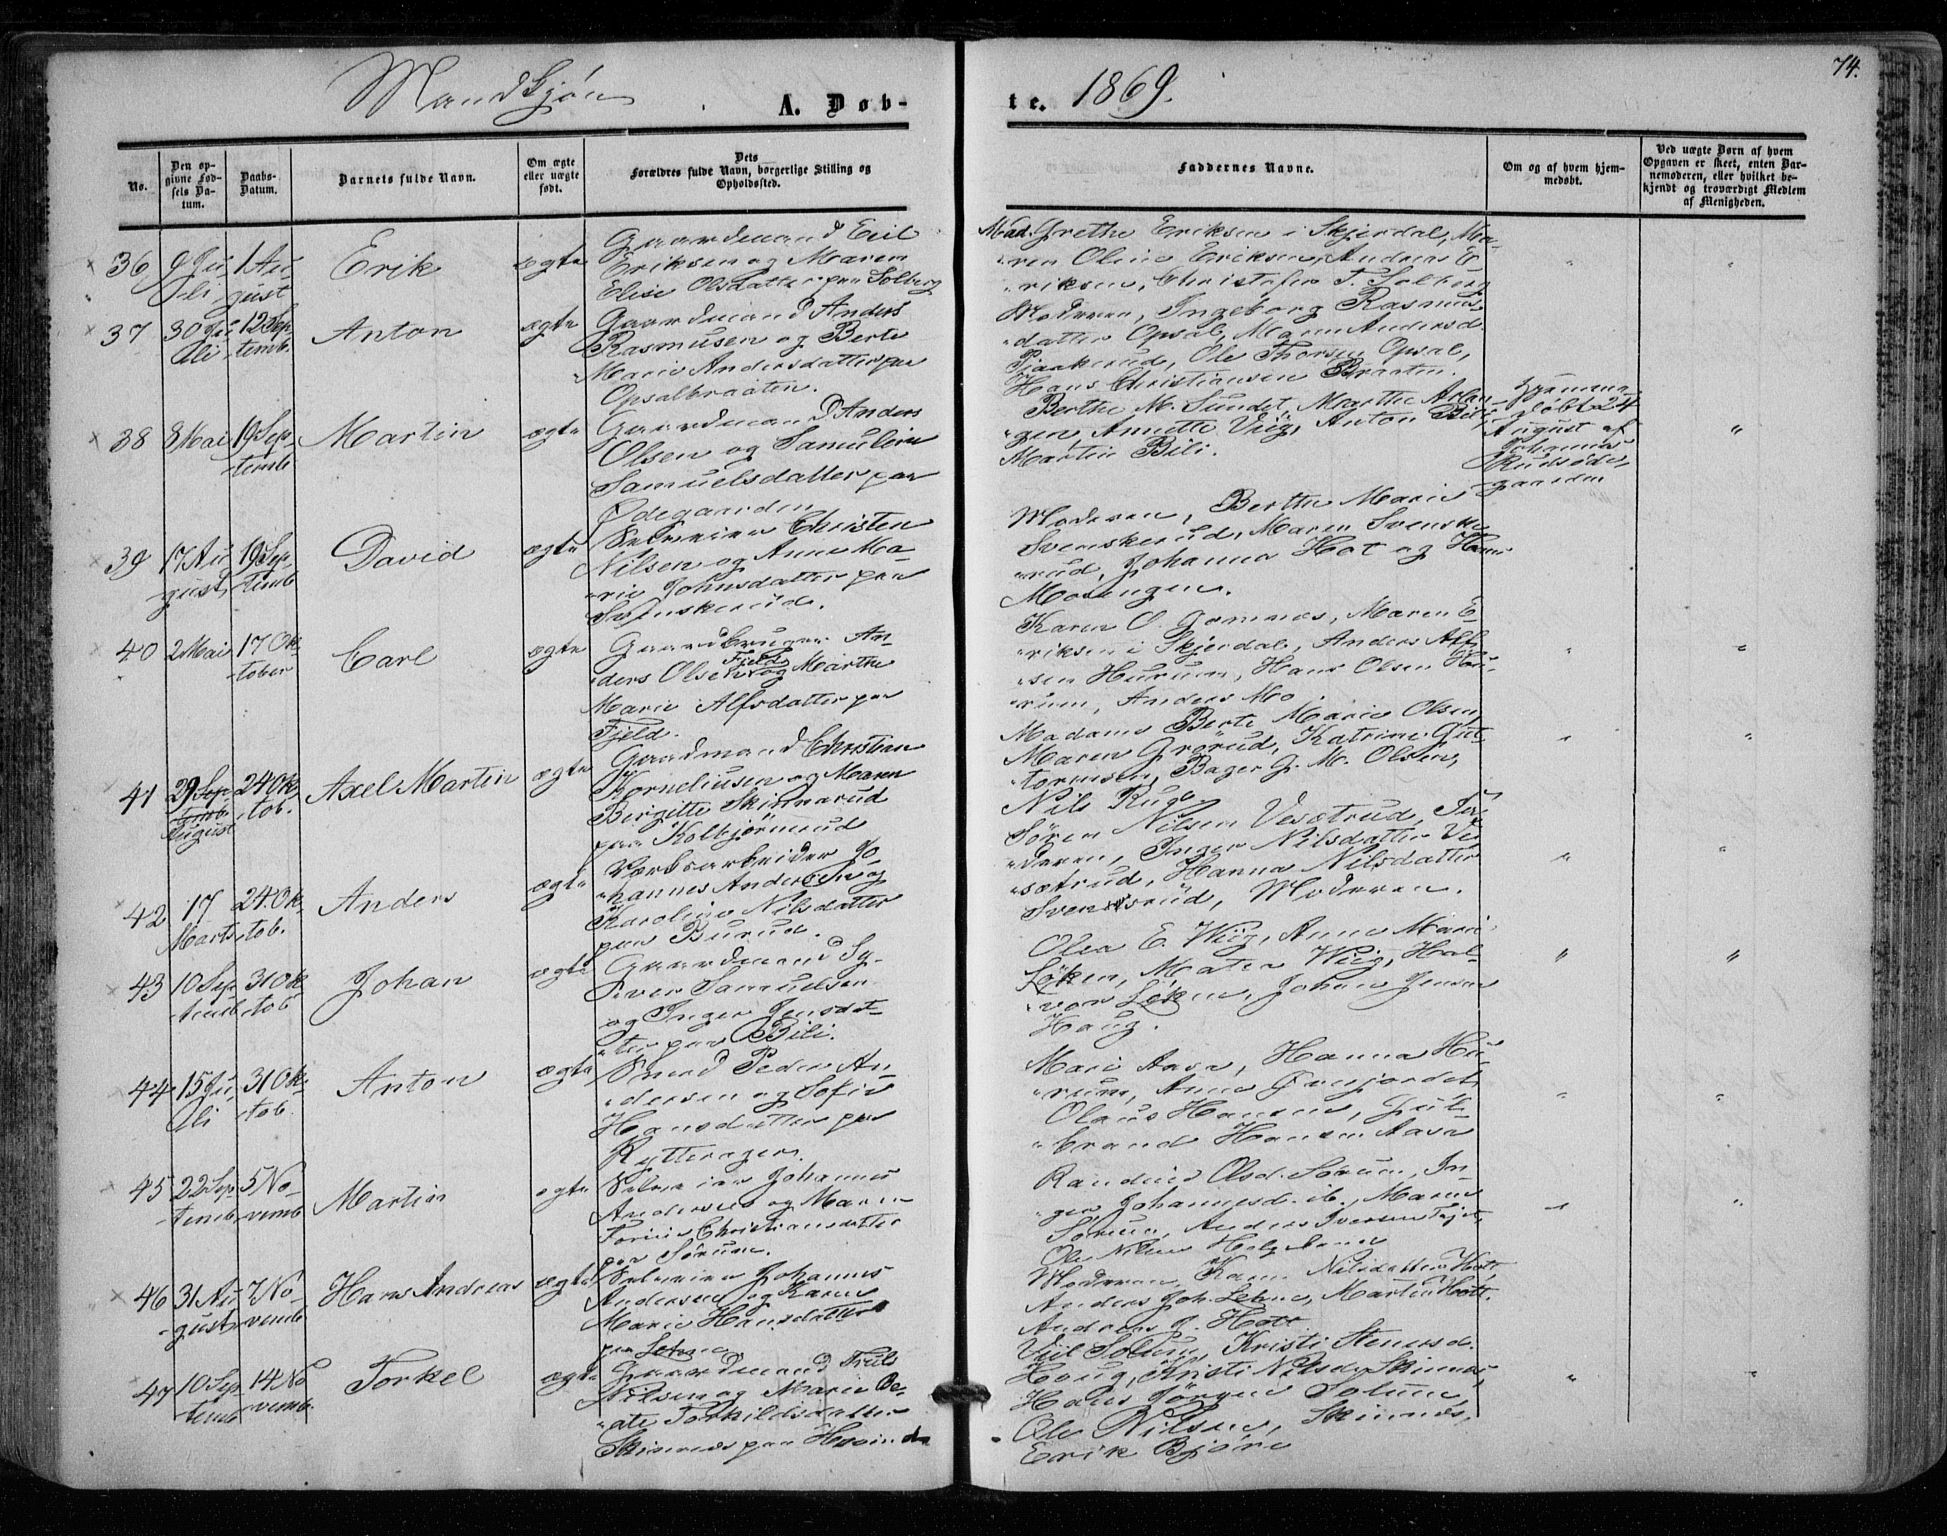 74.
Mandkjøn A. Døb-te. 1869.
No.
Den op-
givne Fød-
sels Da-
tum.
Daabs-
Datum.
Barnets fulde Navn.
Om ægte
eller uægte
født.
Dets
Forældres fulde Navn, borgerlige Stilling og
Opholdssted.
Faddernes Navne.
Om og af hvem hjem-
medøbt.
Ved uægte Børn af hvem
Opgaven er skeet, enten Bar-
nemoderen, eller hvilket be-
kjendt og troværdigt Medlem
af Menigheden.
36 9 Ju-
li
1 Au-
gust
Erik
ægte
Gaardmand Eril
Eriksen og Maren
Elise Olsdatter paa Solberg
Mad. Grethe Eriksen i Skjerdal, Ma-
ren Oline Eriksen, Anders E-
riksen, Christofer T. Solberg
37 30 Ju-
li
12 Sep-
temb.
Anton
ægte
Gaardmand Anders
Rasmusen og Berte
Marie Andersdatter paa
Opsalbraaten.
Moderen, Ingeborg Rasmus-
datter Opsal, Maren Andersd.
Pjaakerud, Ole Thorsen Opsal,
Hans Christiansen Braaten.
38 8 Mai
19 Sep-
temb.
Martin
ægte
Gaardmand Anders
Olsen og Samuline
Samuelsdatter paa
Ødegaarden
Berthe M. Sundet, Marthe
gen, Annette Viig, Anton Bili,
Martin Bili.
Hjemme-
døbt 24
August af
Johannes
Rudsøde-
gaarden
39 17 Au-
gust
19 Sep-
temb
David
ægte
Selveier Christen
Nilsen og Anne Ma-
rie Johnsdatter paa
Svenskerud.
Moderen, Berthe Marie
Svenskerud, Maren Svenske-
rud, Johanna Hot og Hans
Moengen.
40 2 Mai
17 Ok-
tober
Carl
ægte
Gaardbruger An-
ders Olsen Fjeld og Marthe
Marie Alfsdatter paa
Fjeld.
Karen O. Gomnes, Maren E-
riksen i Skjerdal, Anders Alf-
sen Hurum, Hans Olsen Hu-
rum, Anders Mo
41 29 Sep-
temb.
August
24 Ok-
tob.
Axel Martin
ægte
Gaardmand Christian
Korneliusen og Maren
Birgitte Skinnarud
paa Kolbjørnrud
Madams Berte Marie Olsen,
Maren Grørud, Katrine Gut-
tormsen, Bager G. M. Olsen,
Nils Rud
42 17
Marts
24 Ok-
tob.
Anders
ægte
Værksarbeider Jo-
hannes Andersen og
Karoline Nilsdatter
paa Burud.
Søren Nilsen Vesetrud, Fa-
deren, Inger Nilsdatter Ve-
sætrud, Hanna Nilsdatter
Svensrud, Moderen.
43 10 Sep-
temb
31 Ok-
tob
Johan
ægte
Gaardmand Sy-
ver Samuelsen
og Inger Jensdat-
ter paa Bili.
Olea E. Viig, Anne Marie
Løken, Mater Wiig, Hal-
vor Løken, Johan Jensen
Haug.
44 15 Ju-
li
31 Ok-
tob.
Anton
ægte
Smed Peder An-
dersen og Sofie
Hansdatter paa
Rytterager.
Mari Aasa, Hanna Hu-
rum, Anne
Olaus Hansen, Gul-
brand Hansen Aasa
45 22 Sep-
temb.
5 No-
vemb
Martin
ægte
Selveier Johannes
Andersen og Maren
Christiansdatter
paa Sørum.
Randine Olsd. Sørum, In-
ger Johannesd. ib., Maren
Sørum, Anders Iversen
Ole Nilsen
46 31 Au-
gust
7 No-
vemb
Hans Andreas
ægte
Selveier Johannes
Andersen og Karen
Marie Hansdatter
paa
Moderen, Karen Nilsdatter Hott,
Anders Joh. Martin Hott.
Andreas J. Hott
47 10 Sep-
temb
14 No-
vemb.
Torkel
ægte
Gaardmand Truls
Nilsen og Marie Be-
ate Torkildsdatter
Skinnes paa
Solum, Kristi Stenersd.
Houg, Kristi Nilsd. Skinnes,
Hans Jørgen Solum,
Ole Nilsen, Skinnes,
Erik Bjøre